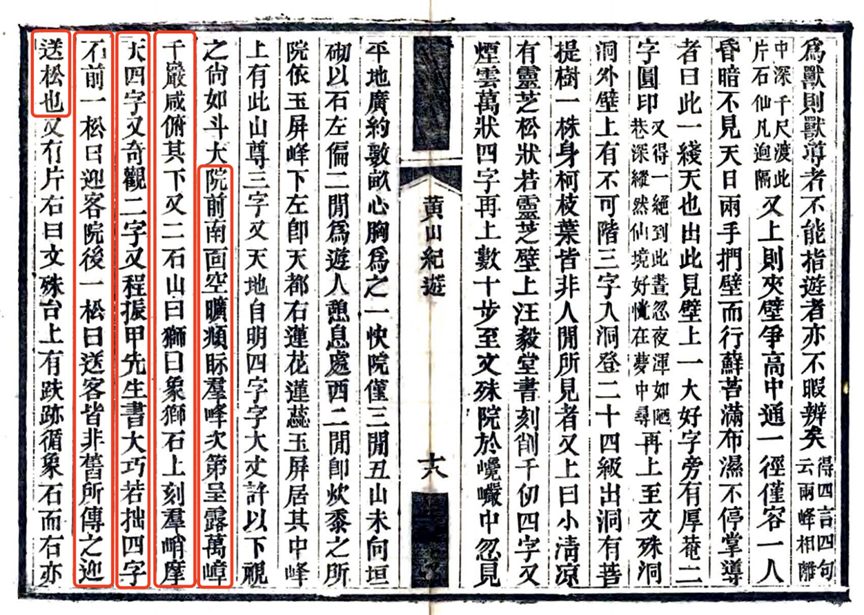 爲獸則獸尊者不能指遊者亦不暇辨矣得四言四句云兩峰相離
中深千尺渡此片石仙凡迥隔又上則夾壁爭高中通一徑僅容一人
昏暗不見天日兩手捫壁而行蘚苔滿布濕不停掌導
者曰此一綫天也出此見壁上一大好字旁有厚菴二
字圓印又得一絕到此晝忽夜渾如陋巷深縱然仙境好恍在夢中尋再上至文殊洞
洞外壁上有不可階三字入洞登二十四級出洞有菩
提樹一株身柯枝葉皆非人間所見者又上曰小清凉
有靈芝松狀若靈芝壁上汪毅堂書刻削千仞四字又
煙雲萬狀四字再上數十步至文殊院於巉巖中忽見
黃山紀遊
十六
平地廣約數畝心胸爲之一快院僅三間丑山未向垣
砌以石左偏二間爲遊人憩息處西二間卽炊黍之所
院依玉屏峰下左卽天都右蓮花蓮蕊玉屏居其中峰
上有此山尊三字又天地自明四字字大丈許以下視
之尙如斗大院前南面空曠頫眎羣峰次第呈露萬嶂
千巖咸俯其下又二石山曰獅曰象獅石上刻羣峭摩
天四字又奇觀二字又程振甲先生書大巧若拙四字
石前一松曰迎客院後一松曰送客皆非舊所傳之迎
送松也又有片石曰文殊台上有趺跡循象石而右亦